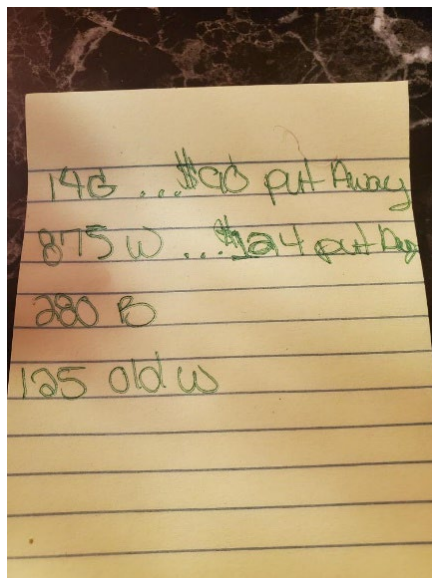 14G ...$90 put Away
875 W ...$124 put
280 B
125 old W